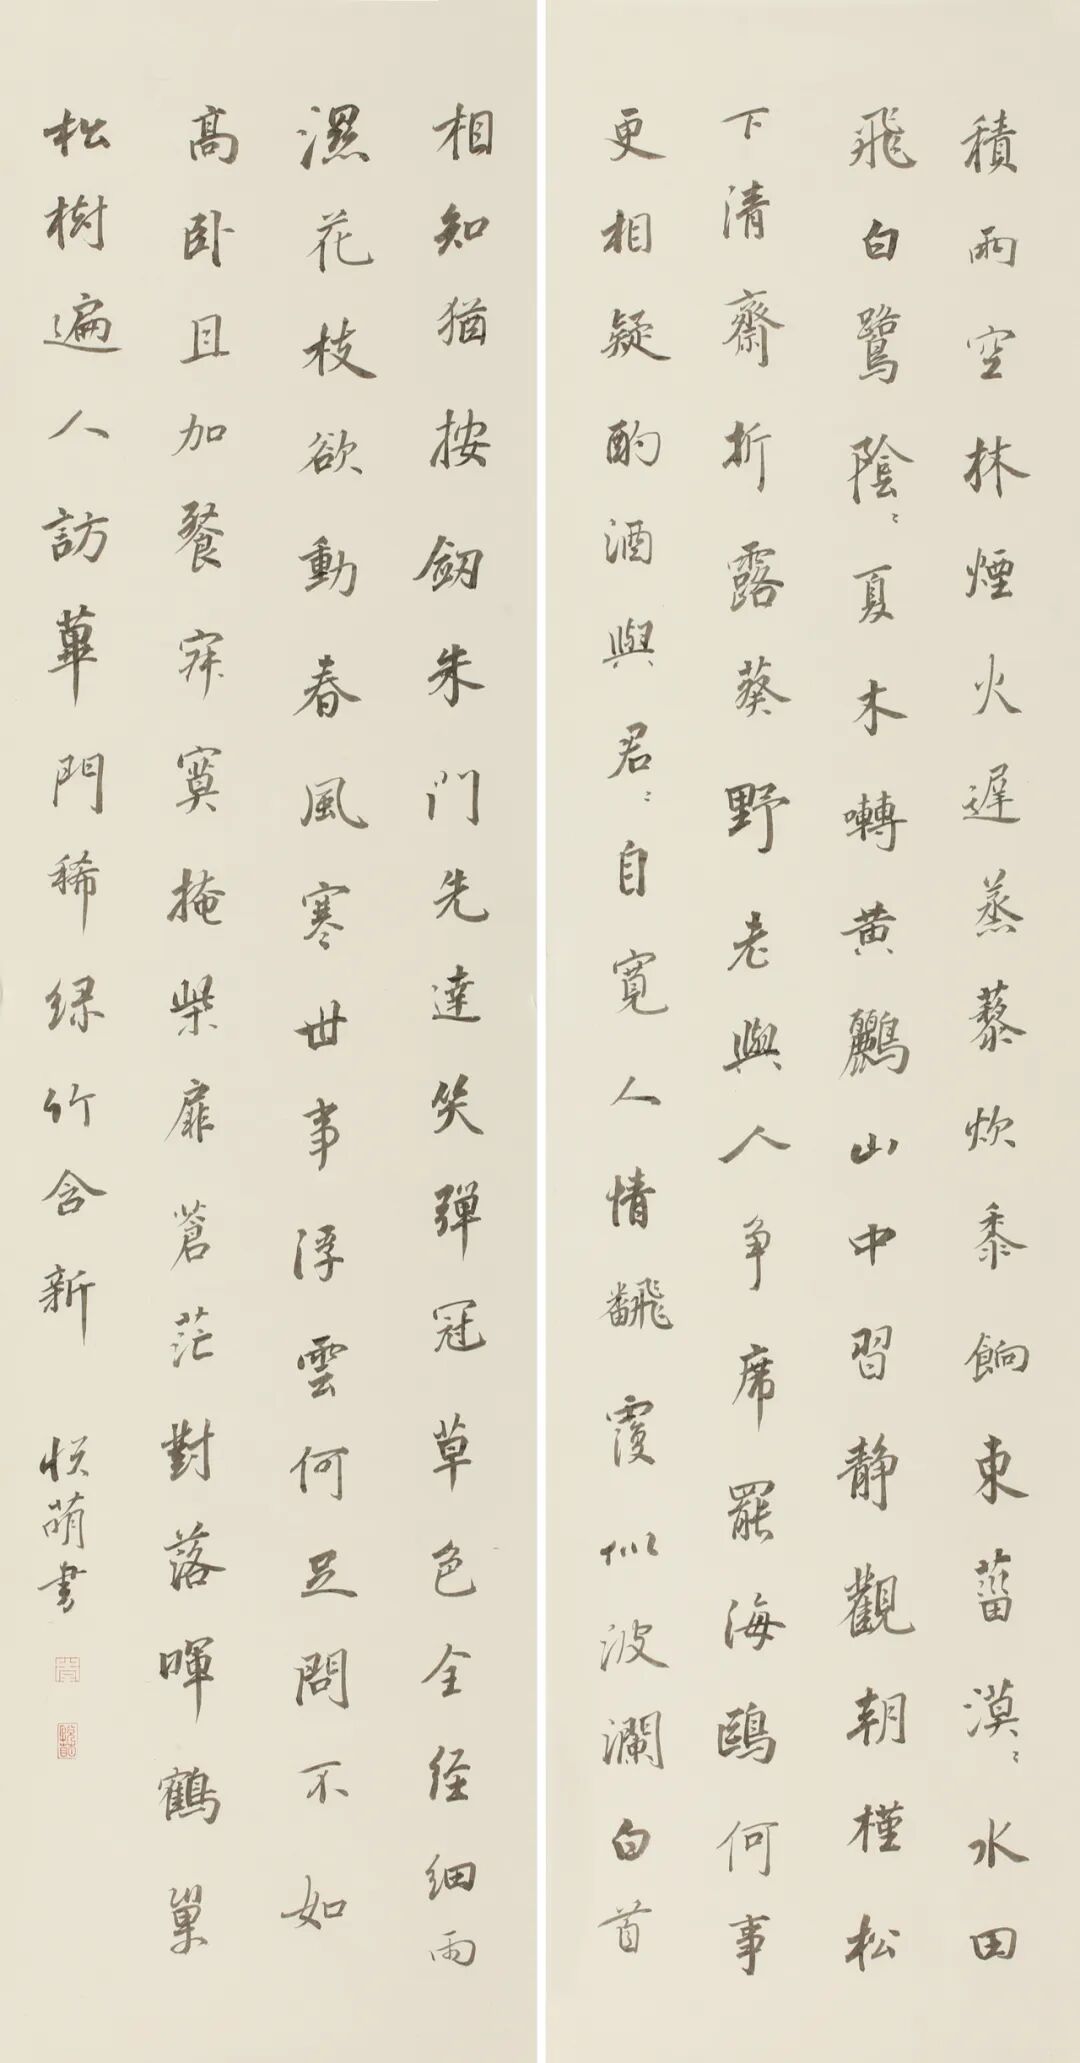 積雨空林煙火遲蒸藜炊黍餉東菑漠〻水田
飛白鷺陰〻夏木囀黄鸝山中習静觀朝槿松
下清齋折露葵野老與人争席罷海鷗何事
更相疑酌酒與君〻自寬人情飜覆似波瀾白首
相知猶按劔朱門先達笑彈冠草色全経細雨
濕花枝欲動春風寒世事浮雲何足問不如
高卧且加餐寂寞掩柴扉蒼茫對落暉鶴巢
松樹遍人訪蓽門稀緑竹含新
悦萌書